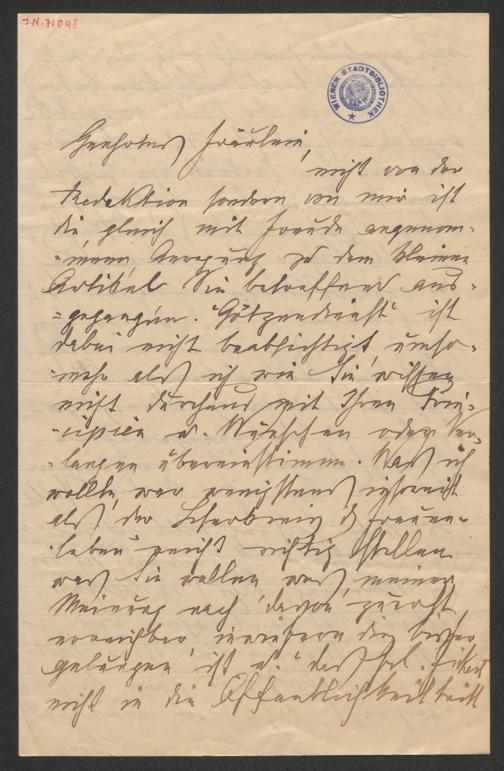 J.N. 71098
WIENER STADTBIBLIOTHEK
Geehrtes Fräulein,
nicht von der
Redaktion sondern von mir ist
die gleich mit Freude angenom-
-mene Anregung zu dem kleinen
Artikel Sie betreffend aus-
-gegangen. "Götzendienst" ist
dabei nicht beabsichtigt, umso-
-mehr als ich wie Sie wissen
nicht durchaus mit Ihren Prin-
-cipien u. Wünschen oder Ver-
-langen übereinstimme. Was ich
wollte, war wenigstens insoweit
als der
leben reicht richtig stellen
was Sie wollen, was meiner
Meinung nach davon zuerst
erreichbar, inwiefern dies bisher
gelungen ist u. dass Frl. Fickert
nicht in die Öffentlichkeit tritt